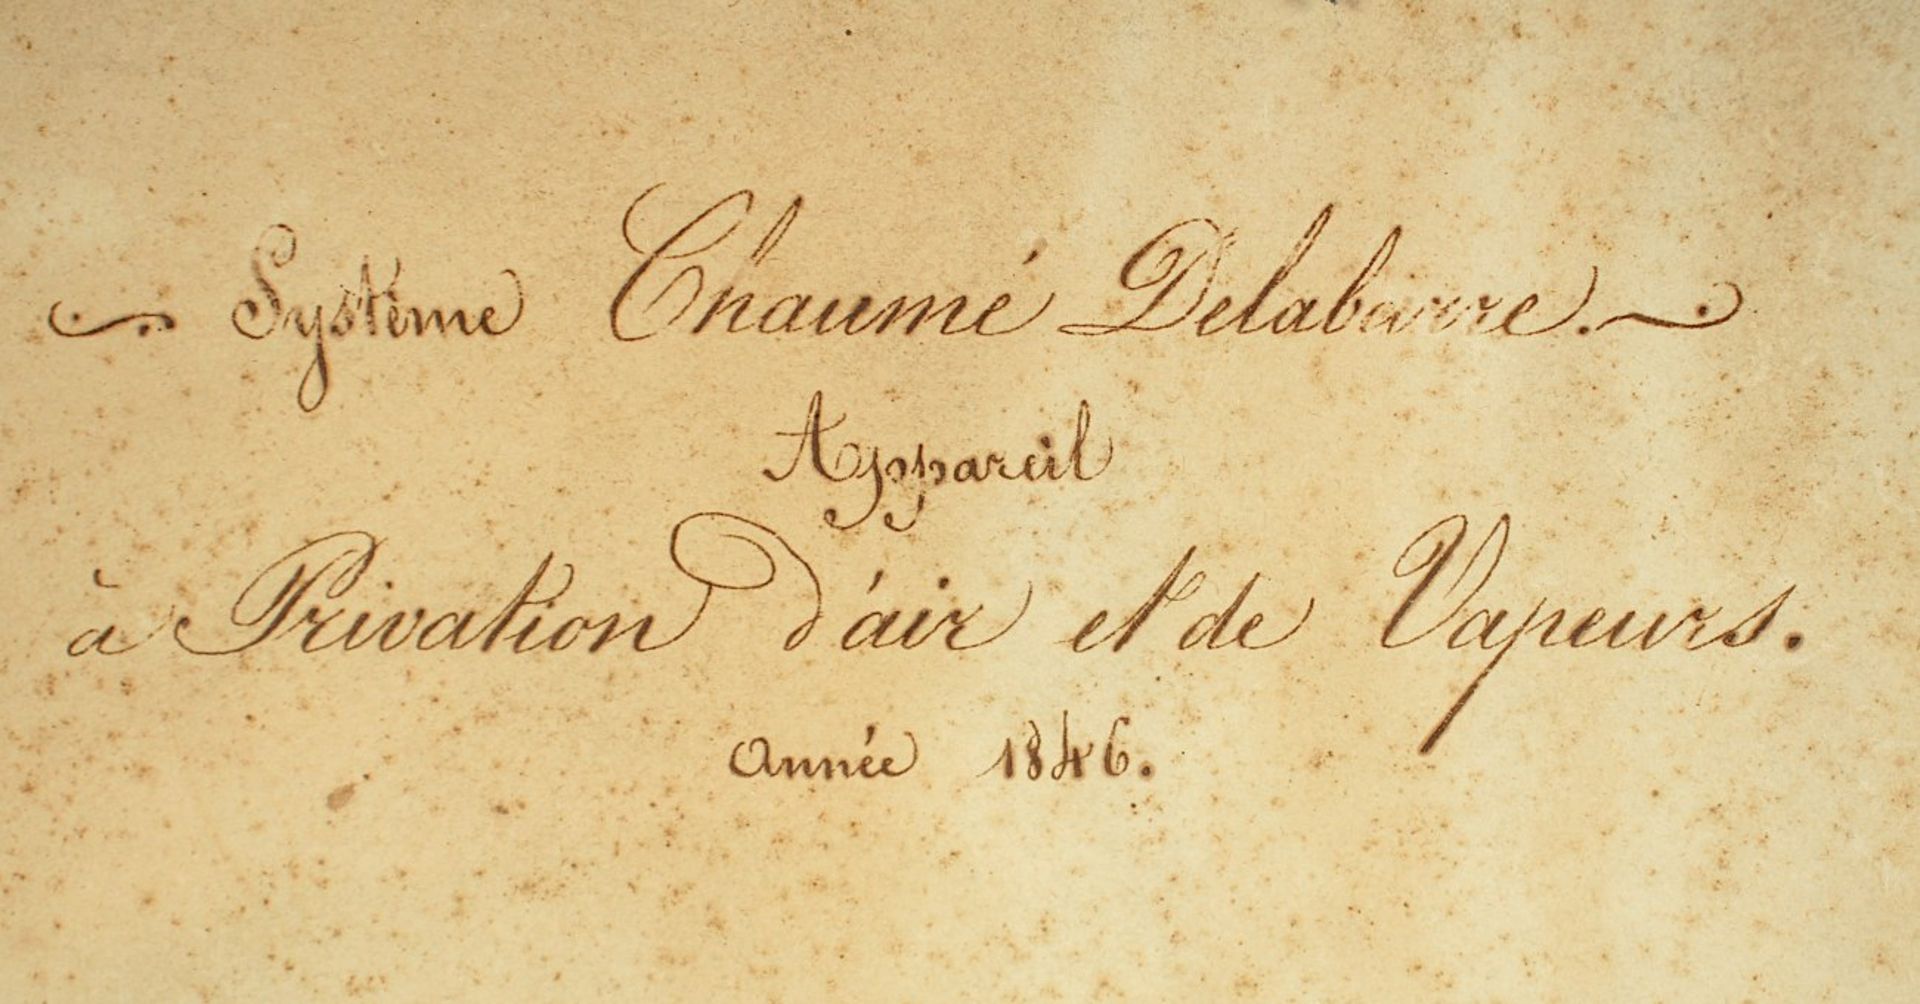 Système Chaumé Delabarre.
Appareil
à Privation d'air et de Vapeurs.
Année 1846.